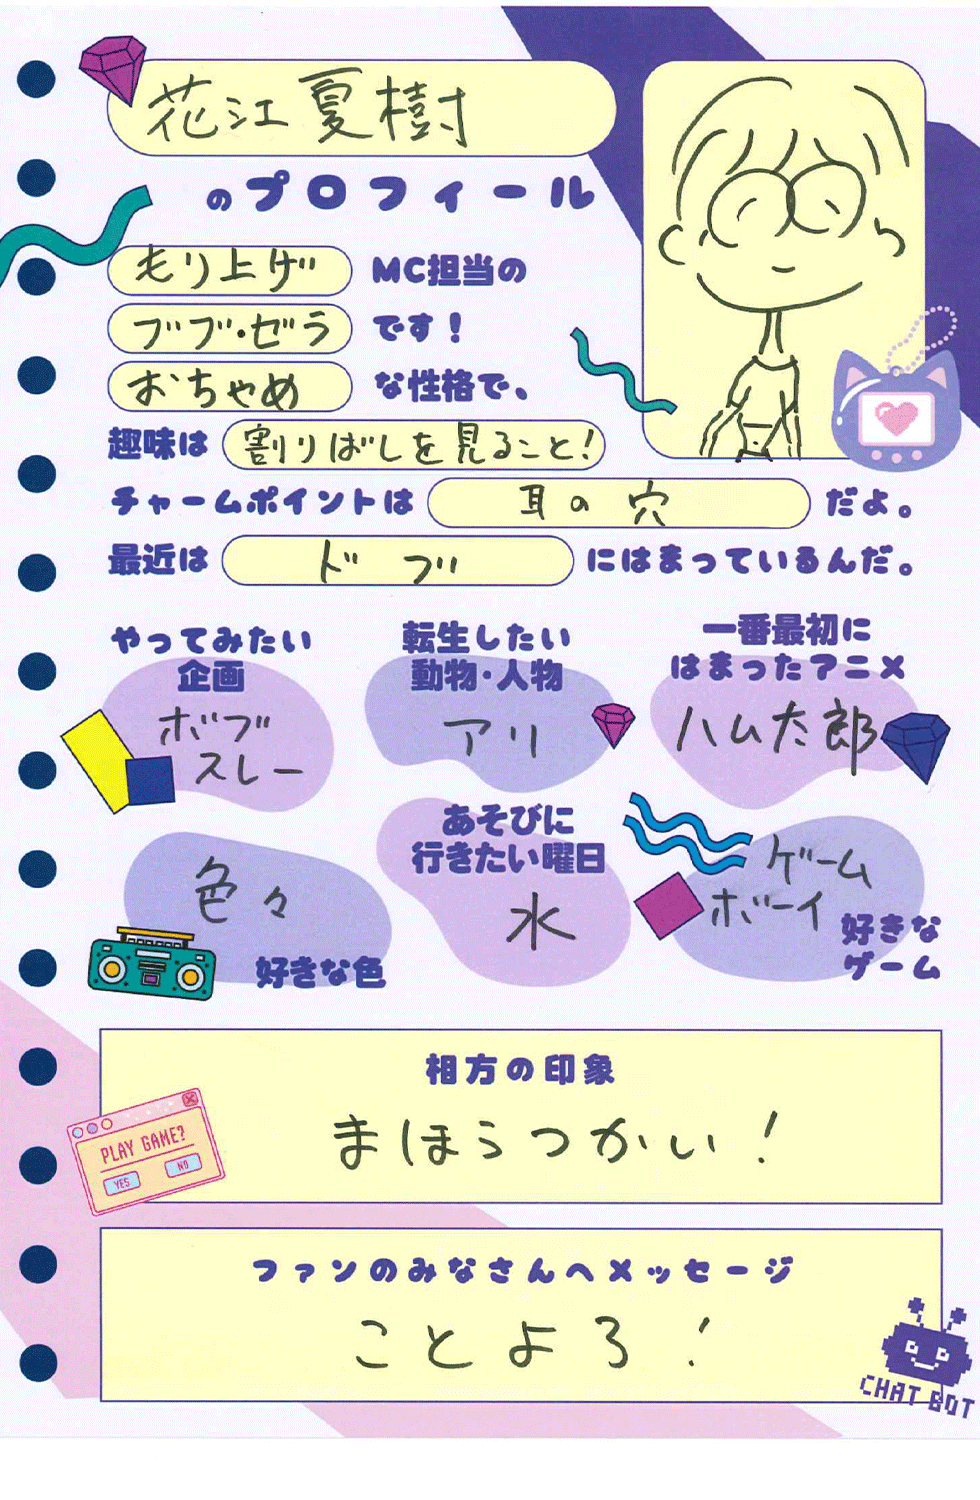 花江夏樹
のプロフィール
もり上げ MC担当の
ブブ・ゼラ です!
おちゃめ な性格で、
趣味は 割りばしを見ること!
チャームポイントは 耳の穴 だよ。
最近は ドブ にはまっているんだ。
やってみたい
企画
ボブ
スレー
転生したい
動物・人物
アリ
一番最初に
はまったアニメ
ハム太郎
色々
好きな色
あそびに
行きたい曜日
水
ゲーム
ボーイ
好きな
ゲーム
相方の印象
まほうつかい!
PLAY GAME?
YES NO
ファンのみなさんへメッセージ
ことよろ!
CHAT BOT